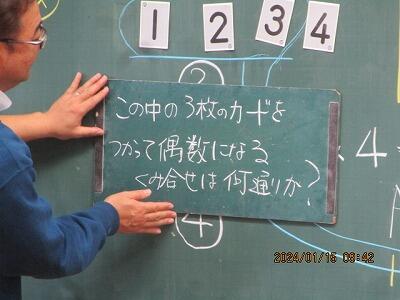 1 2 3 4
この中の3枚のカードを
つかって偶数になる
くみ合せは何通りか?
×4
④
2024/01/15